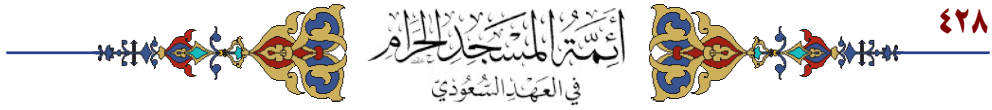 ٤٢٨
أَئِمَّةُ المَسْجِدِ الحَرَامِ
فِي العَهْدِ السُّعُودِيّ